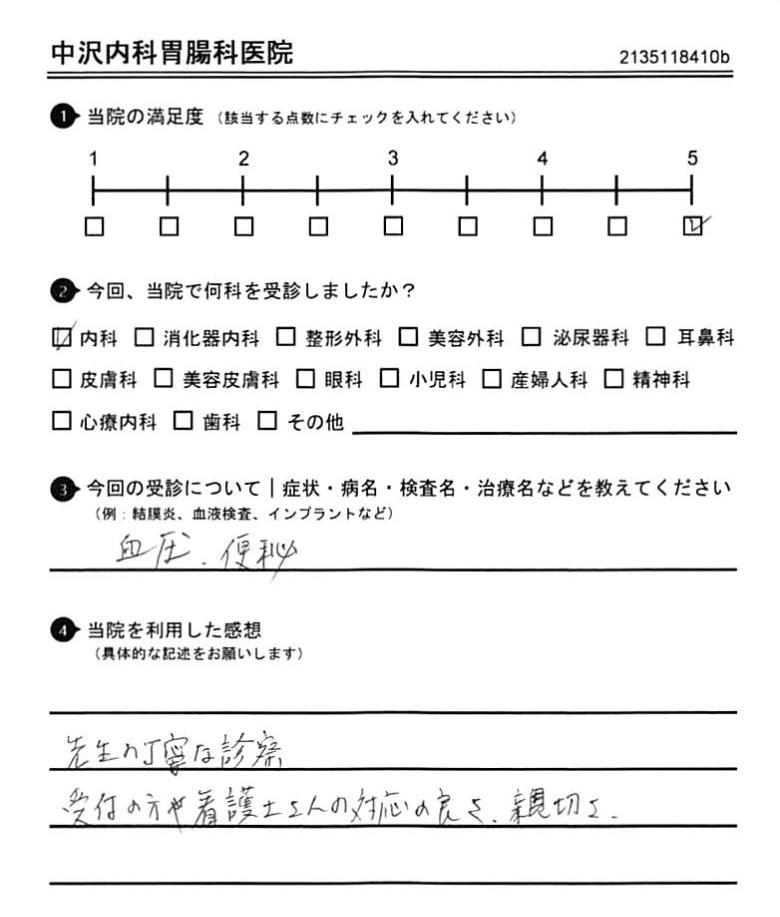 中沢内科胃腸科医院
2135118410b
1 当院の満足度（該当する点数にチェックを入れてください）
1 2 3 4 5
2 今回、当院で何科を受診しましたか？
内科 消化器内科 整形外科 美容外科 泌尿器科 耳鼻科
皮膚科 美容皮膚科 眼科 小児科 産婦人科 精神科
心療内科 歯科 その他
3 今回の受診について｜症状・病名・検査名・治療名などを教えてください
（例：結膜炎、血液検査、インプラントなど）
血圧、便秘
4 当院を利用した感想
（具体的な記述をお願いします）
先生の丁寧な診察
受付の方や看護士さんの対応の良さ、親切さ.